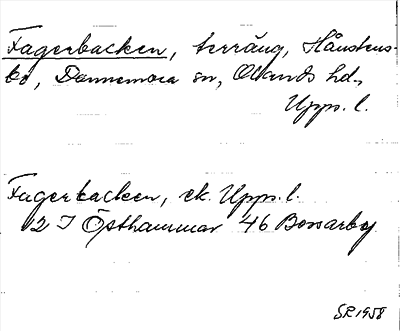 Fagerbacken, terräng, Hånstens-
bo, Dannemora sn, Olands hd,
Upps. l.
Fagerbacken, ek. Upps. l.
12 I Östhammar 46 Bossarby
SR 1958